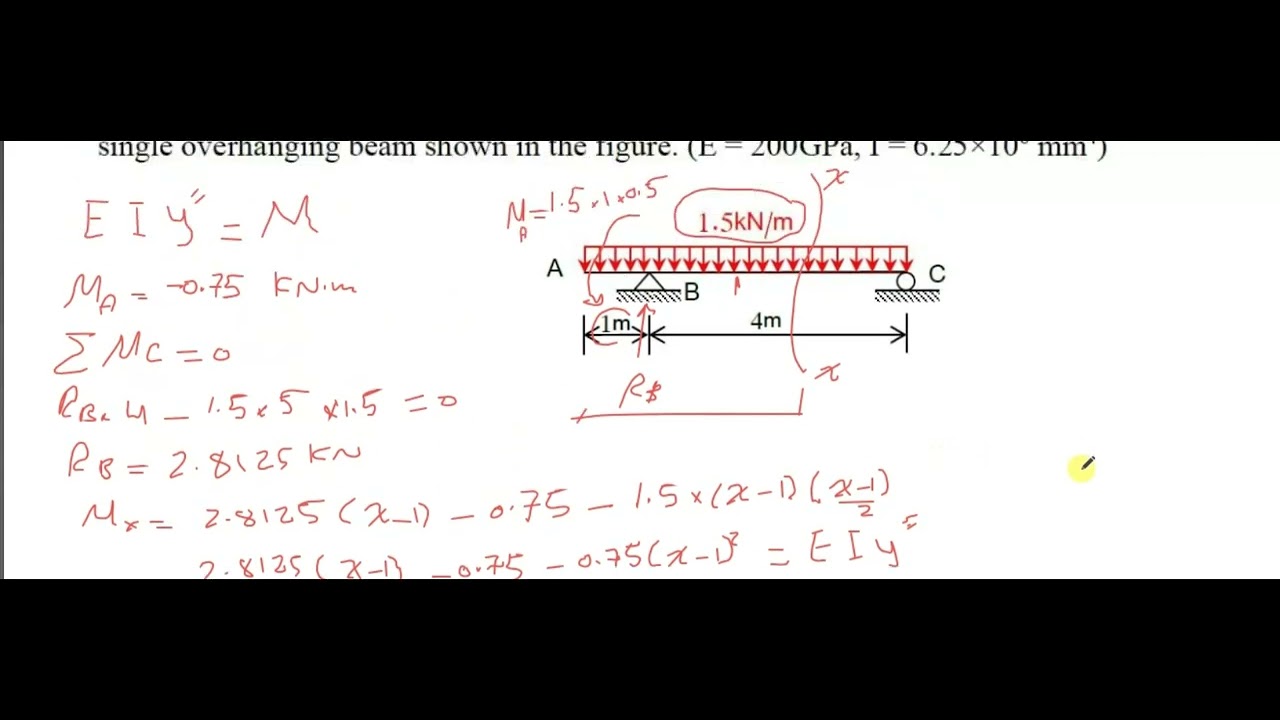 single overhanging beam shown in the figure. (E = 200GPa, I = 6.25×10⁶ mm⁴)
E I y" = M
M_A = 1.5 × 1 × 0.5
1.5kN/m
x
A
B
C
M_A = -0.75 KN.m
1m
4m
ΣMc = 0
R_B
x
R_B × 4 - 1.5 × 5 × 1.5 = 0
R_B = 2.8125 KN
Mx = 2.8125 (x-1) - 0.75 - 1.5 × (x-1) (x-1)/2
2.8125 (x-1) - 0.75 - 0.75 (x-1)² = E I y"